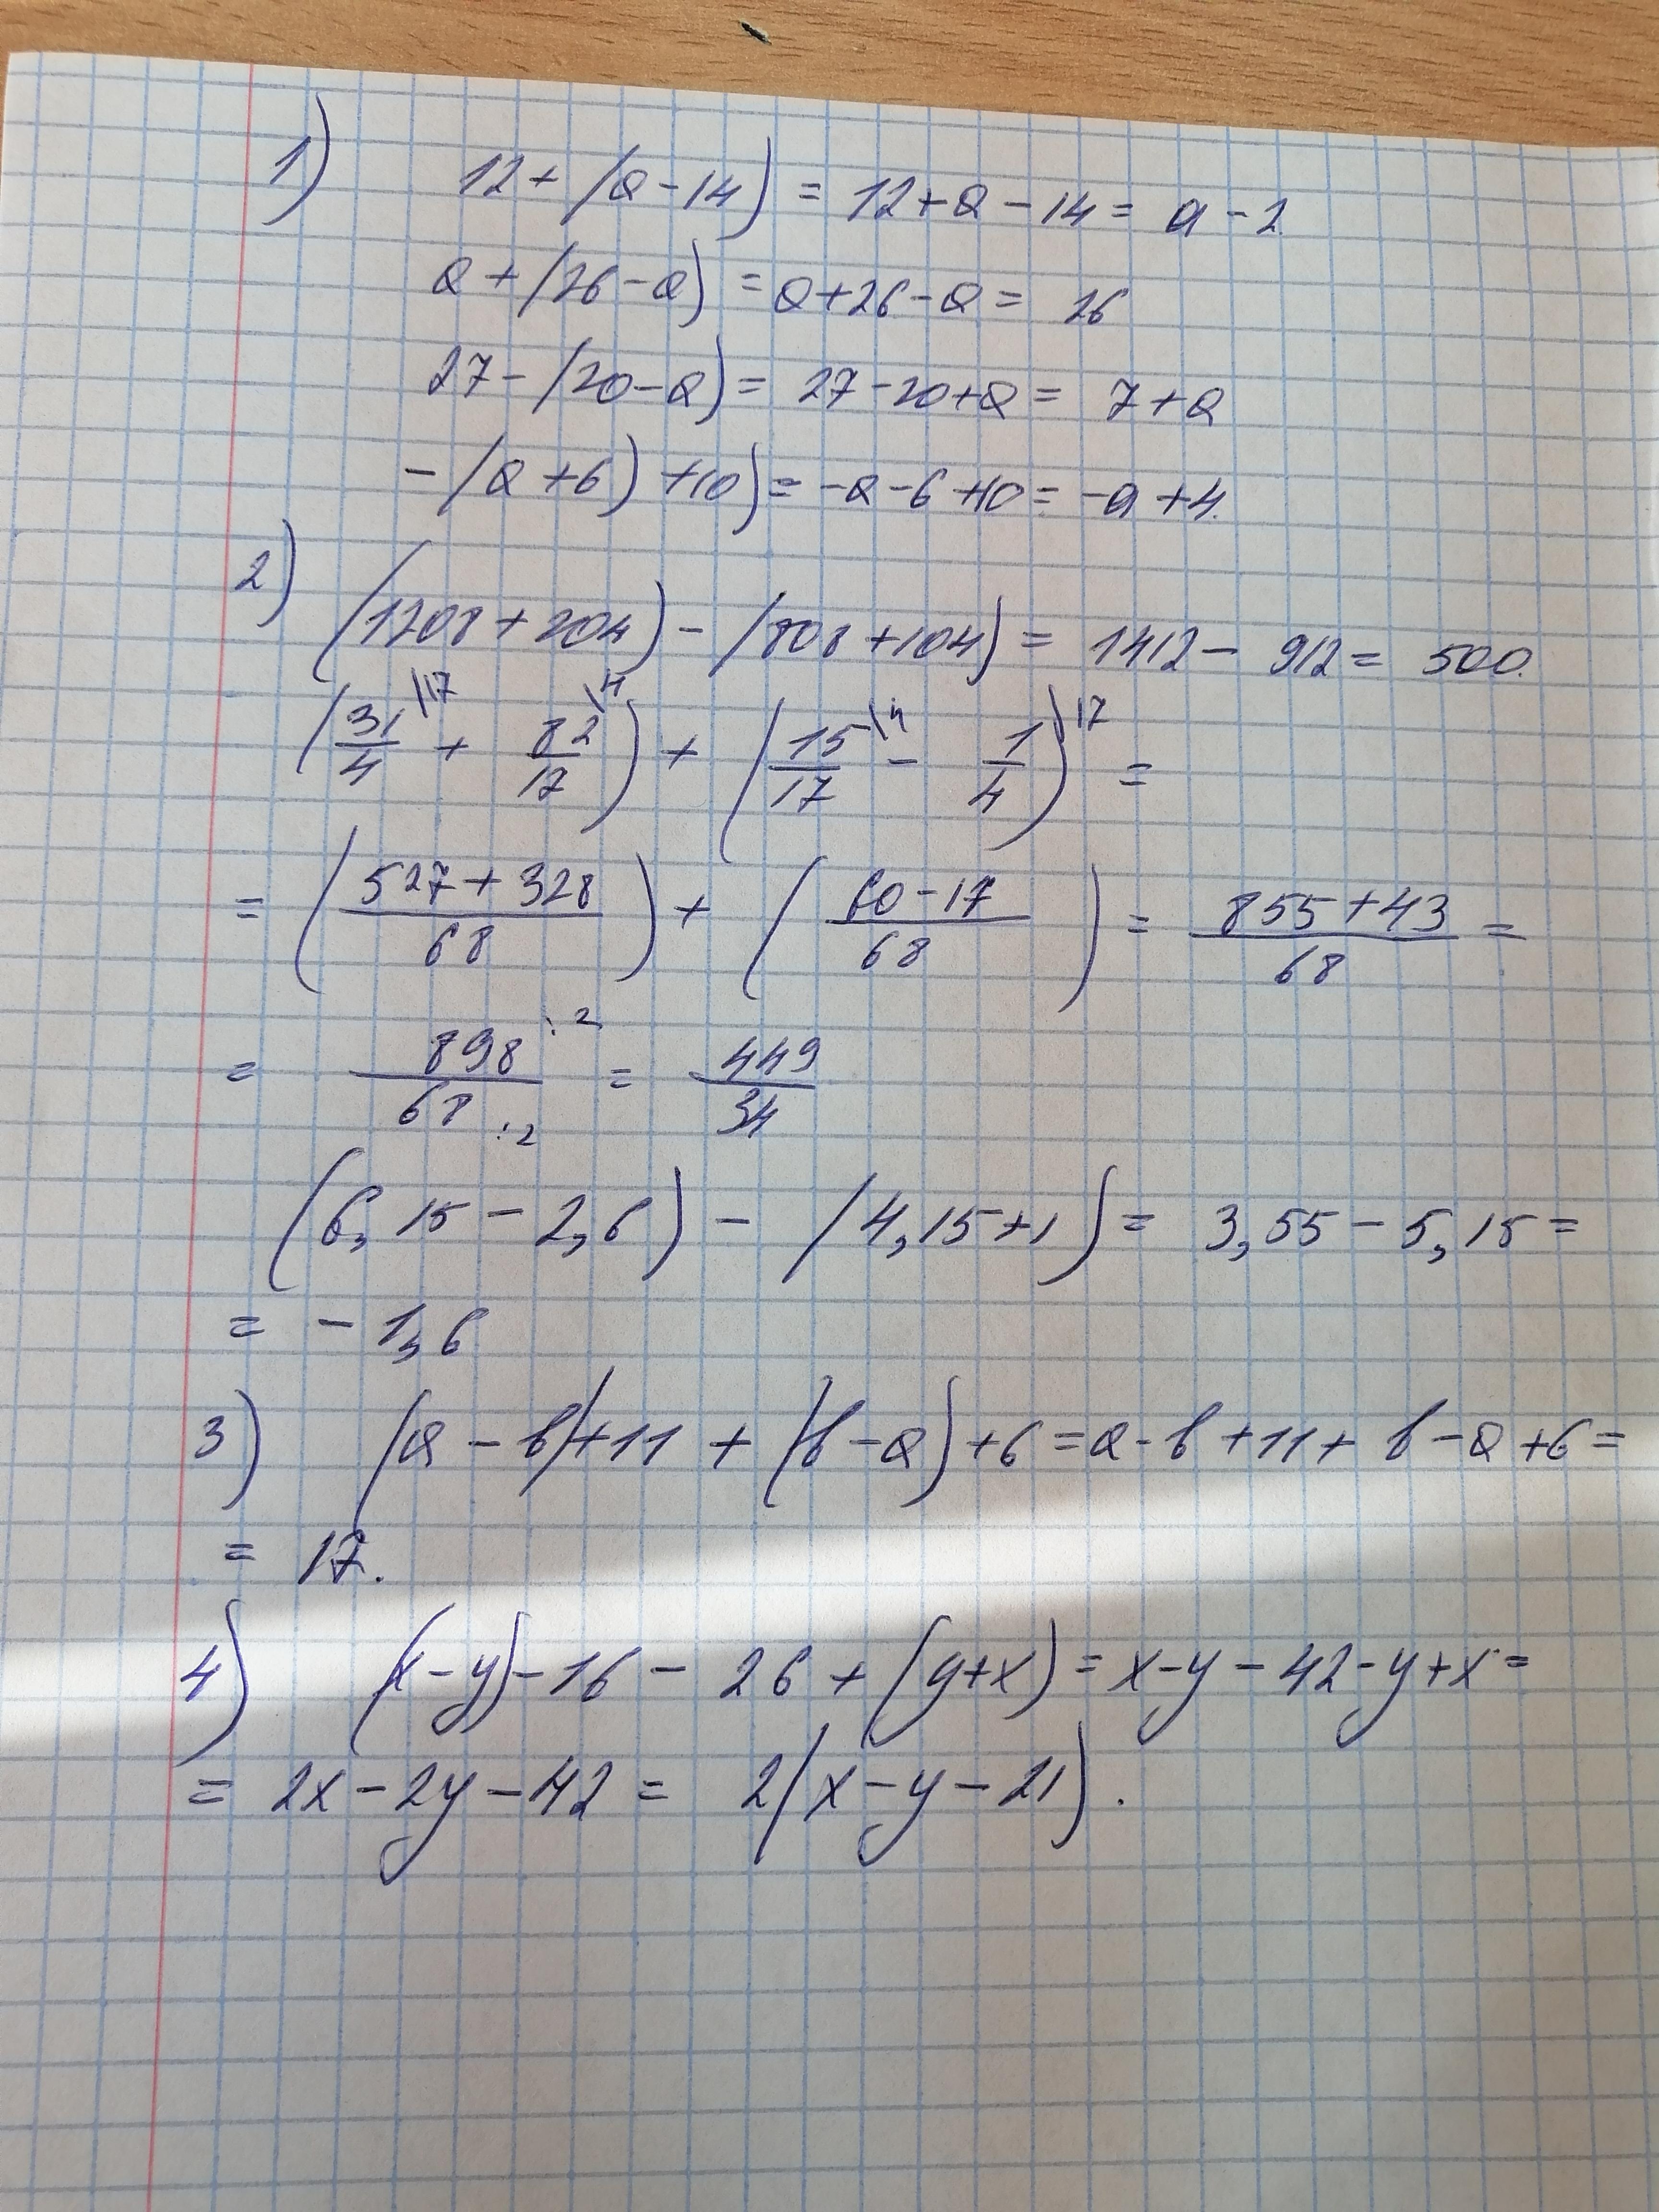 1) 12 + (a - 14) = 12 + a - 14 = a - 2
a + (26 - a) = a + 26 - a = 26
27 - (20 - a) = 27 - 20 + a = 7 + a
- (a + 6) + 10) = -a - 6 + 10 = -a + 4.
2) (1208 + 204) - (808 + 104) = 1412 - 912 = 500.
(31/4 \17 + 82/17 \4) + (15/17 \4 - 1/4) \17 =
= (527 + 328 / 68) + (60 - 17 / 68) = 855 + 43 / 68 =
= 898 :2 / 68 :2 = 449 / 34
(6,15 - 2,6) - (4,15 + 1) = 3,55 - 5,15 =
= - 1,6
3) (a - b) + 11 + (b - a) + 6 = a - b + 11 + b - a + 6 =
= 17.
4) (x - y) - 16 - 26 + (y + x) = x - y - 42 - y + x =
= 2x - 2y - 42 = 2(x - y - 21).